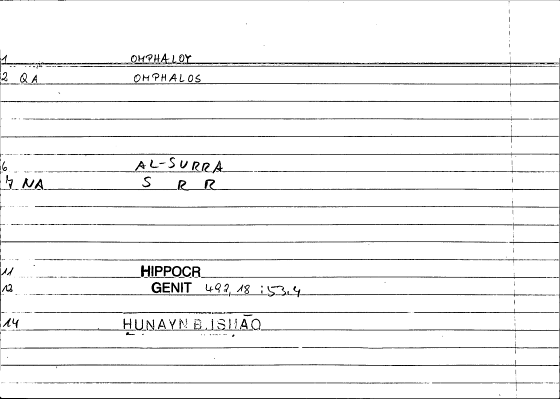 1 OMPHALOY
2 QA OMPHALOS
6 AL-SURRA
7 NA S R R
11 HIPPOCR
12 GENIT 492,18 :53,4
14 HUNAYN B. ISḤĀQ